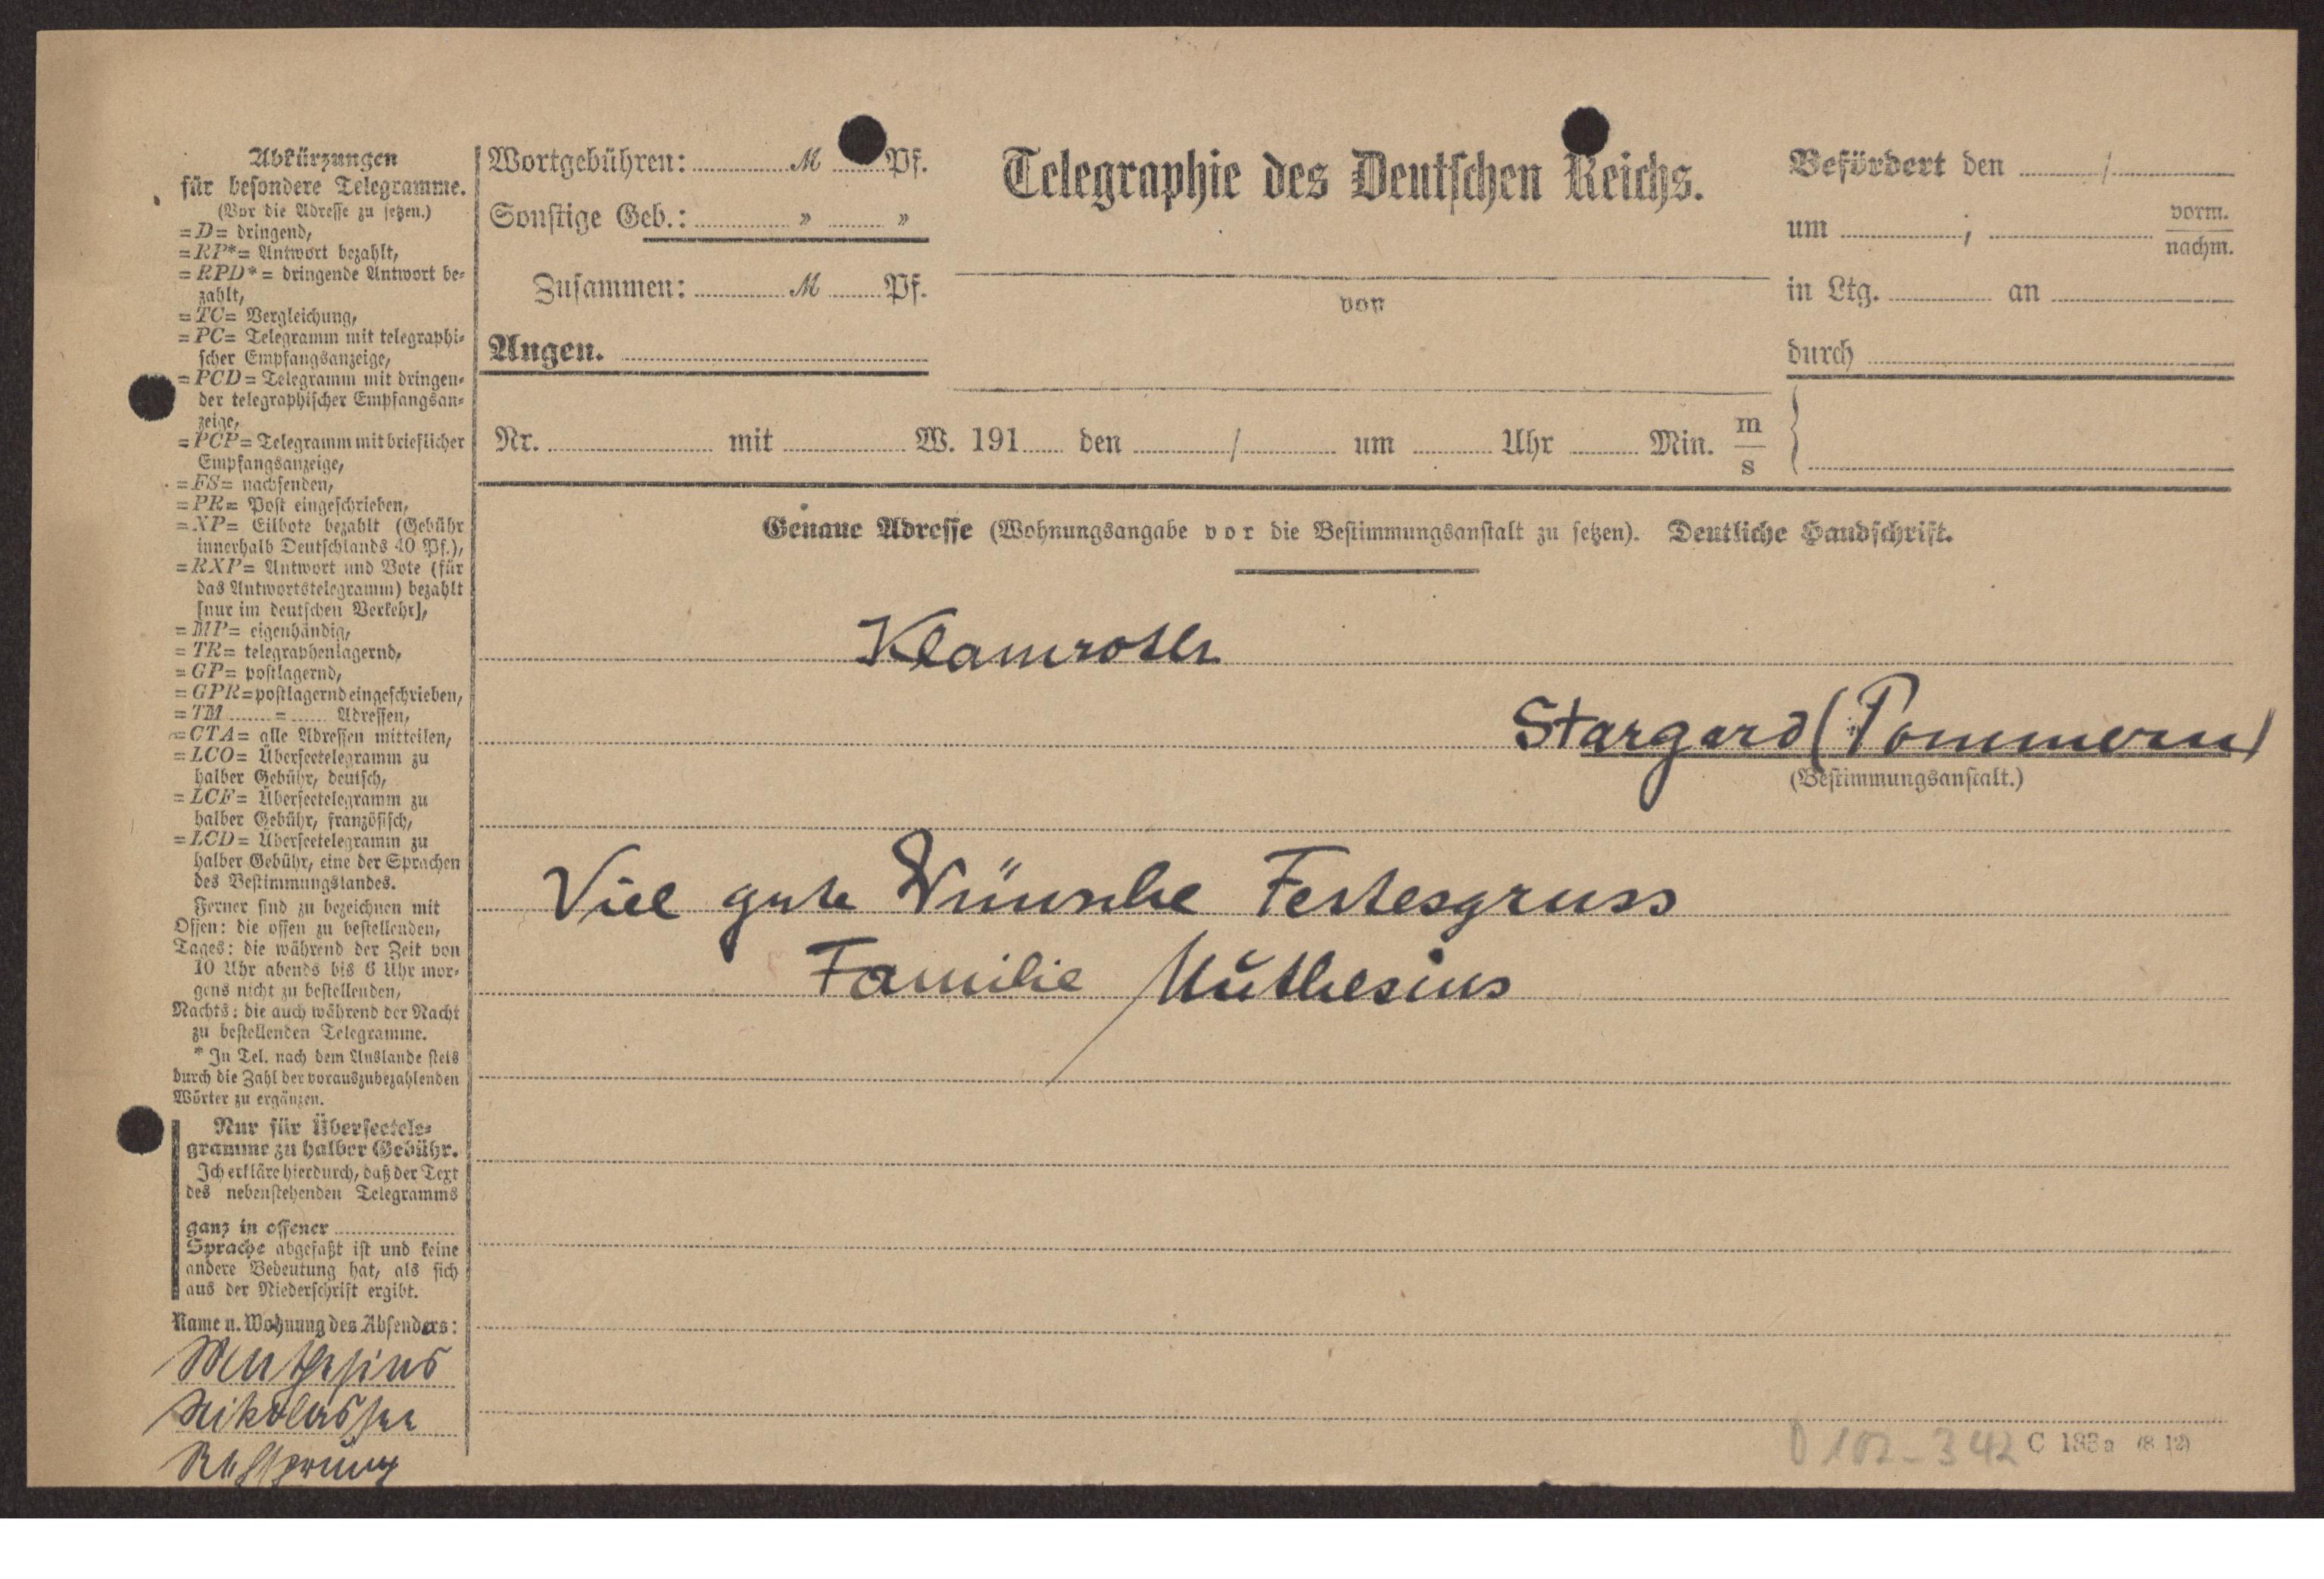 Abkürzungen
für besondere Telegramme.
(Vor die Adresse zu setzen.)
=D= dringend,
=RP*= Antwort bezahlt,
=RPD*= dringende Antwort be-
zahlt,
=TC= Vergleichung,
=PC= Telegramm mit telegraphi-
scher Empfangsanzeige,
=PCD= Telegramm mit dringen-
der telegraphischer Empfangsan-
zeige,
=PCP= Telegramm mit brieflicher
Empfangsanzeige,
=FS= nachsenden,
=PR= Post eingeschrieben,
=XP= Eilbote bezahlt (Gebühr
innerhalb Deutschlands 40 Pf.),
=RXP= Antwort und Bote (für
das Antwortstelegramm) bezahlt
[nur im deutschen Verkehr],
=MP= eigenhändig,
=TR= telegraphenlagernd,
=GP= postlagernd,
=GPR= postlagernd eingeschrieben,
=TM ........ = ...... Adressen,
=CTA= alle Adressen mitteilen,
=LCO= Überseetelegramm zu
halber Gebühr, deutsch,
=LCF= Überseetelegramm zu
halber Gebühr, französisch,
=LCD= Überseetelegramm zu
halber Gebühr, eine der Sprachen
des Bestimmungslandes.
Ferner sind zu bezeichnen mit
Offen: die offen zu bestellenden,
Tages: die während der Zeit von
10 Uhr abends bis 6 Uhr mor-
gens nicht zu bestellenden,
Nachts: die auch während der Nacht
zu bestellenden Telegramme.
* In Tel. nach dem Auslande stets
durch die Zahl der vorauszubezahlenden
Wörter zu ergänzen.
Nur für Überseetele-
gramme zu halber Gebühr.
Ich erkläre hierdurch, daß der Text
des nebenstehenden Telegramms
ganz in offener ....................
Sprache abgefaßt ist und keine
andere Bedeutung hat, als sich
aus der Niederschrift ergibt.
Name u. Wohnung des Absenders:
Muthesius
Nikolassee
Wortgebühren: ............ M ...... Pf.
Sonstige Geb.: ............ » ...... »
Zusammen: ............ M ...... Pf.
Angen. ....................
Telegraphie des Deutschen Reichs.
von
Befördert den ........../..........
um ............, ............ vorm.
nachm.
in Ltg. ............ an ............
durch ....................
Nr. ............ mit ............ W. 191...... den ........../.......... um .......... Uhr ........ Min. m
s
Genaue Adresse (Wohnungsangabe vor die Bestimmungsanstalt zu setzen). Deutliche Handschrift.
Klamroth
Stargard (Pommern)
(Bestimmungsanstalt.)
Viel gute Wünsche Festesgruss
Familie Muthesius
D 102-342 C 183a (8. 12)